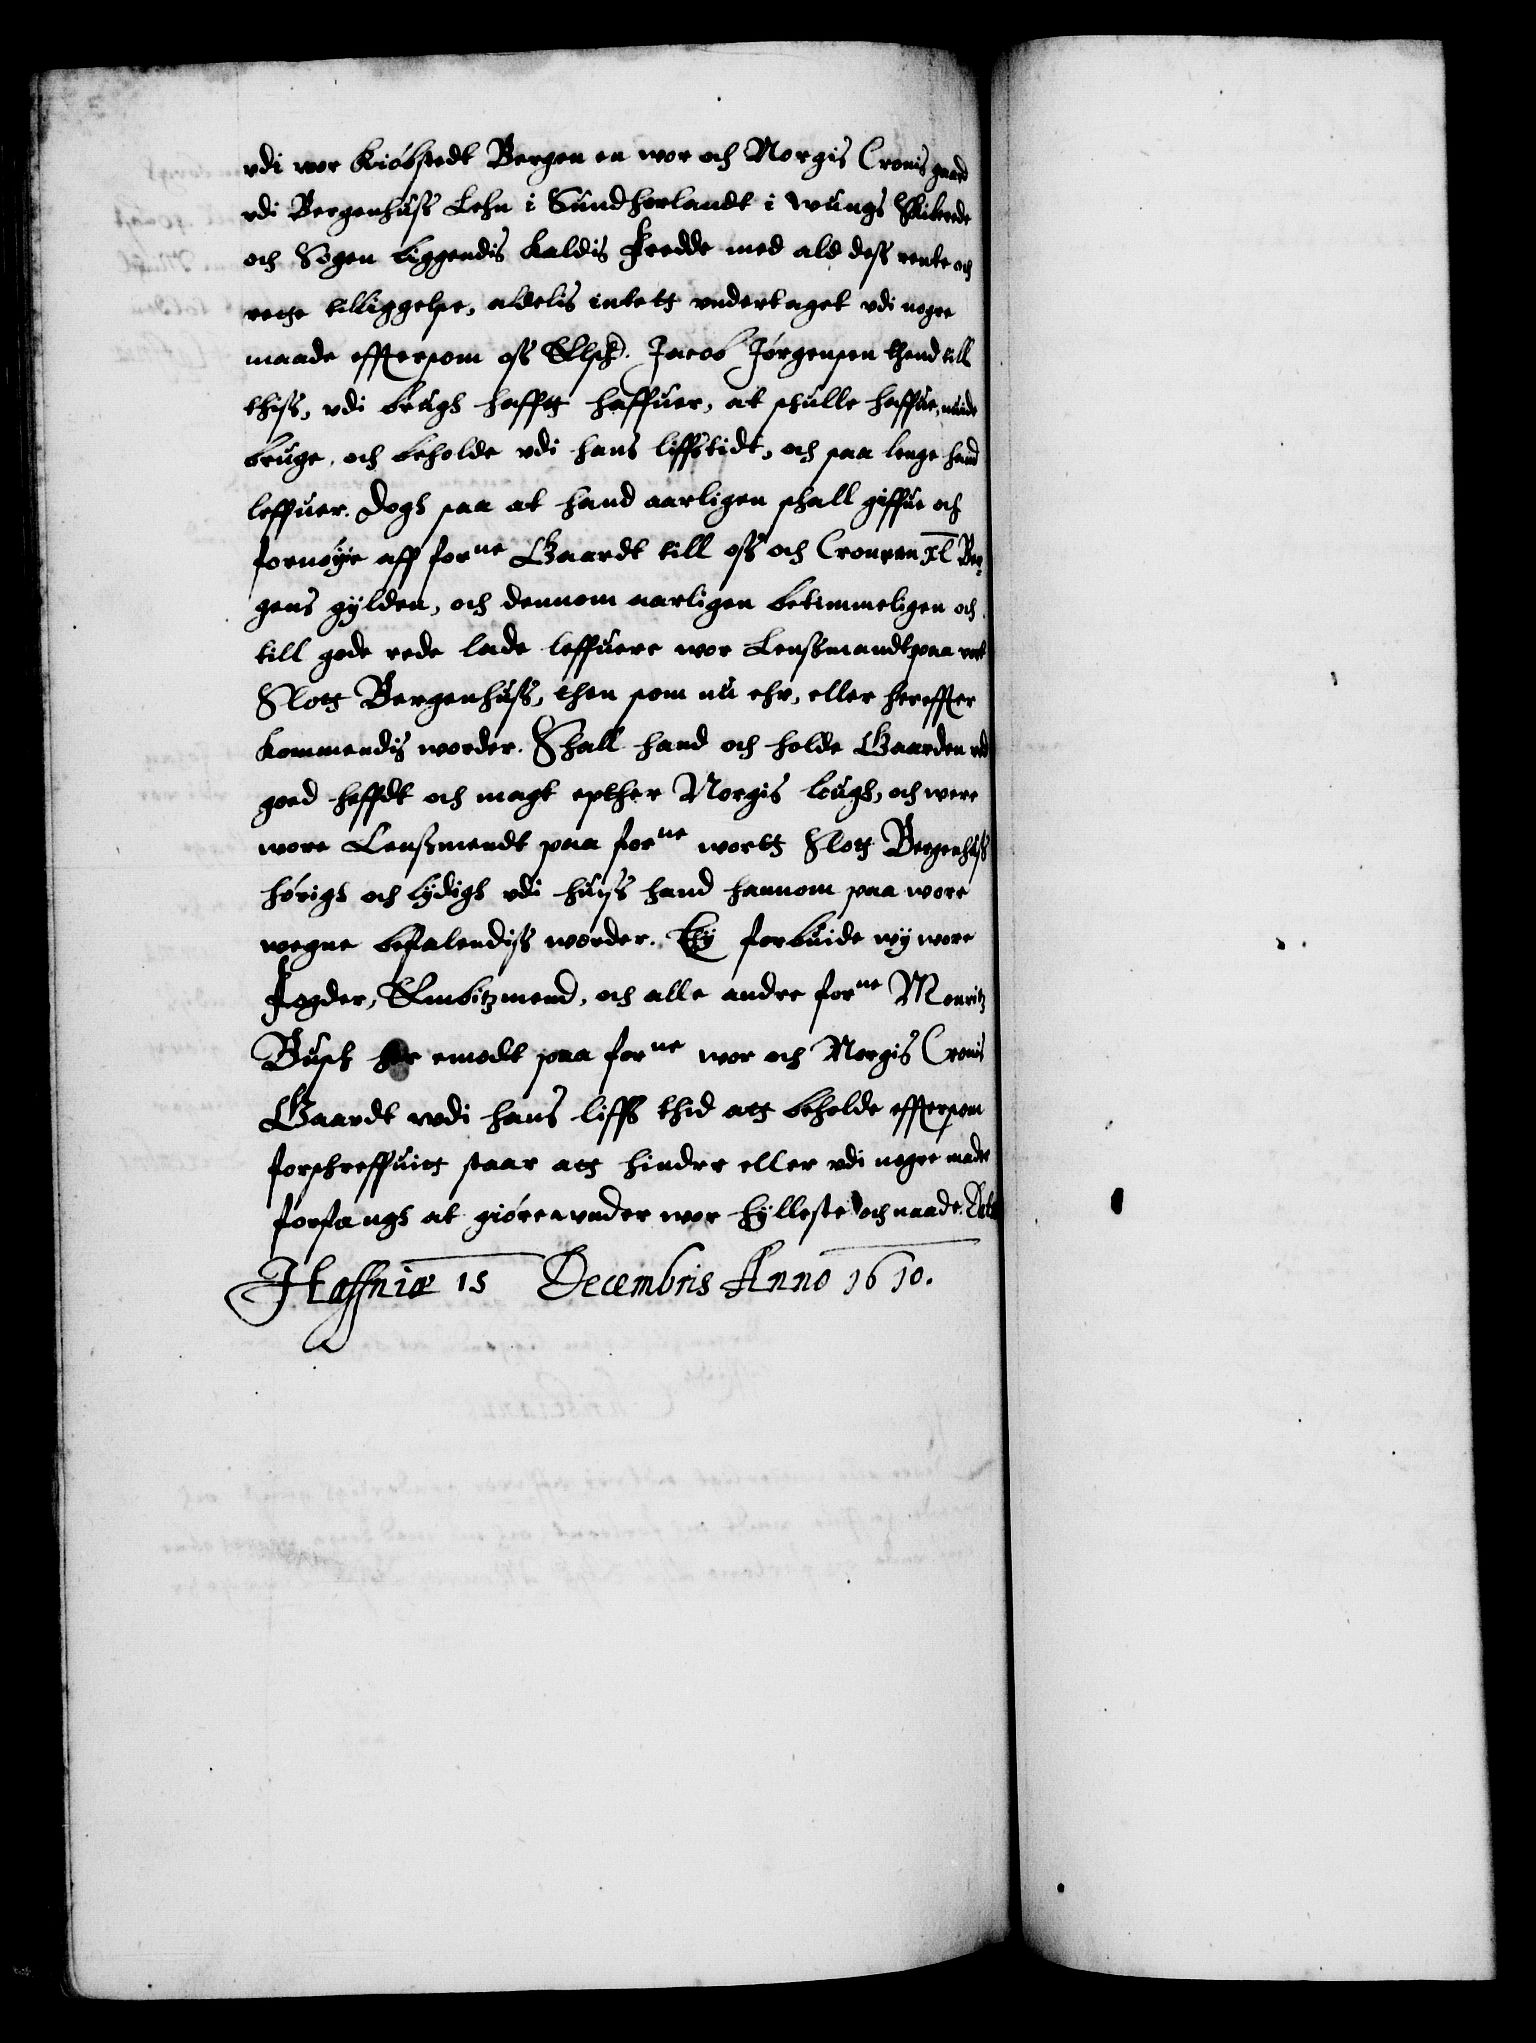 vdi wor Kiöbstedt Bergen en wor och Norgis Cronis gaard
vdi Bergenhuss Lehn i Sundhorlandt i wungs Skibrede
och Sogen liggendis kaldis Fredde med ald dess rente och
rette tilliggelse, aldelis intett vndertaget vdi nogre
maade effttersom oss Elsch. Jacob Jörgensen thend till
thiss, vdi brugh hafftt haffuer, at schulle haffue, niude
bruge, och beholde vdi hans liffstidt, och saa lenge hand
leffuer. Dogh saa at hand aarligen schall giffue och
fornöye aff forne Gaardt till oss och Cronen xl Ber-
gens gylden, och dennom aarligen betimmeligen och
till gode rede lade leffuere wor Lenssmandt paa vort
Slott Bergenhuss, then som nu ehr, eller hereffter
kommendis worder. Schall hand och holde Gaarden ved
goed heffdt och magt epther Norgis lough, och were
wore Lenssmendt paa forne wortt Slott Bergenhuss
hörigh och lydigh vdi huiss hand hannom paa wore
wegne befalendiss worder. Thy forbiude wy wore
Fogder, Embitzmend, och alle andre forne Mouritz
Busch her emodt paa forne wor och Norgis Cronis
Gaardt wdi hans liffs thid att beholde effttersom
forschreffuitt staar att hindre eller vdi nogre made
forfangh at giöre vnder wor hylleste och naade Dat
Haffniæ 15 Decembris Anno 1610.